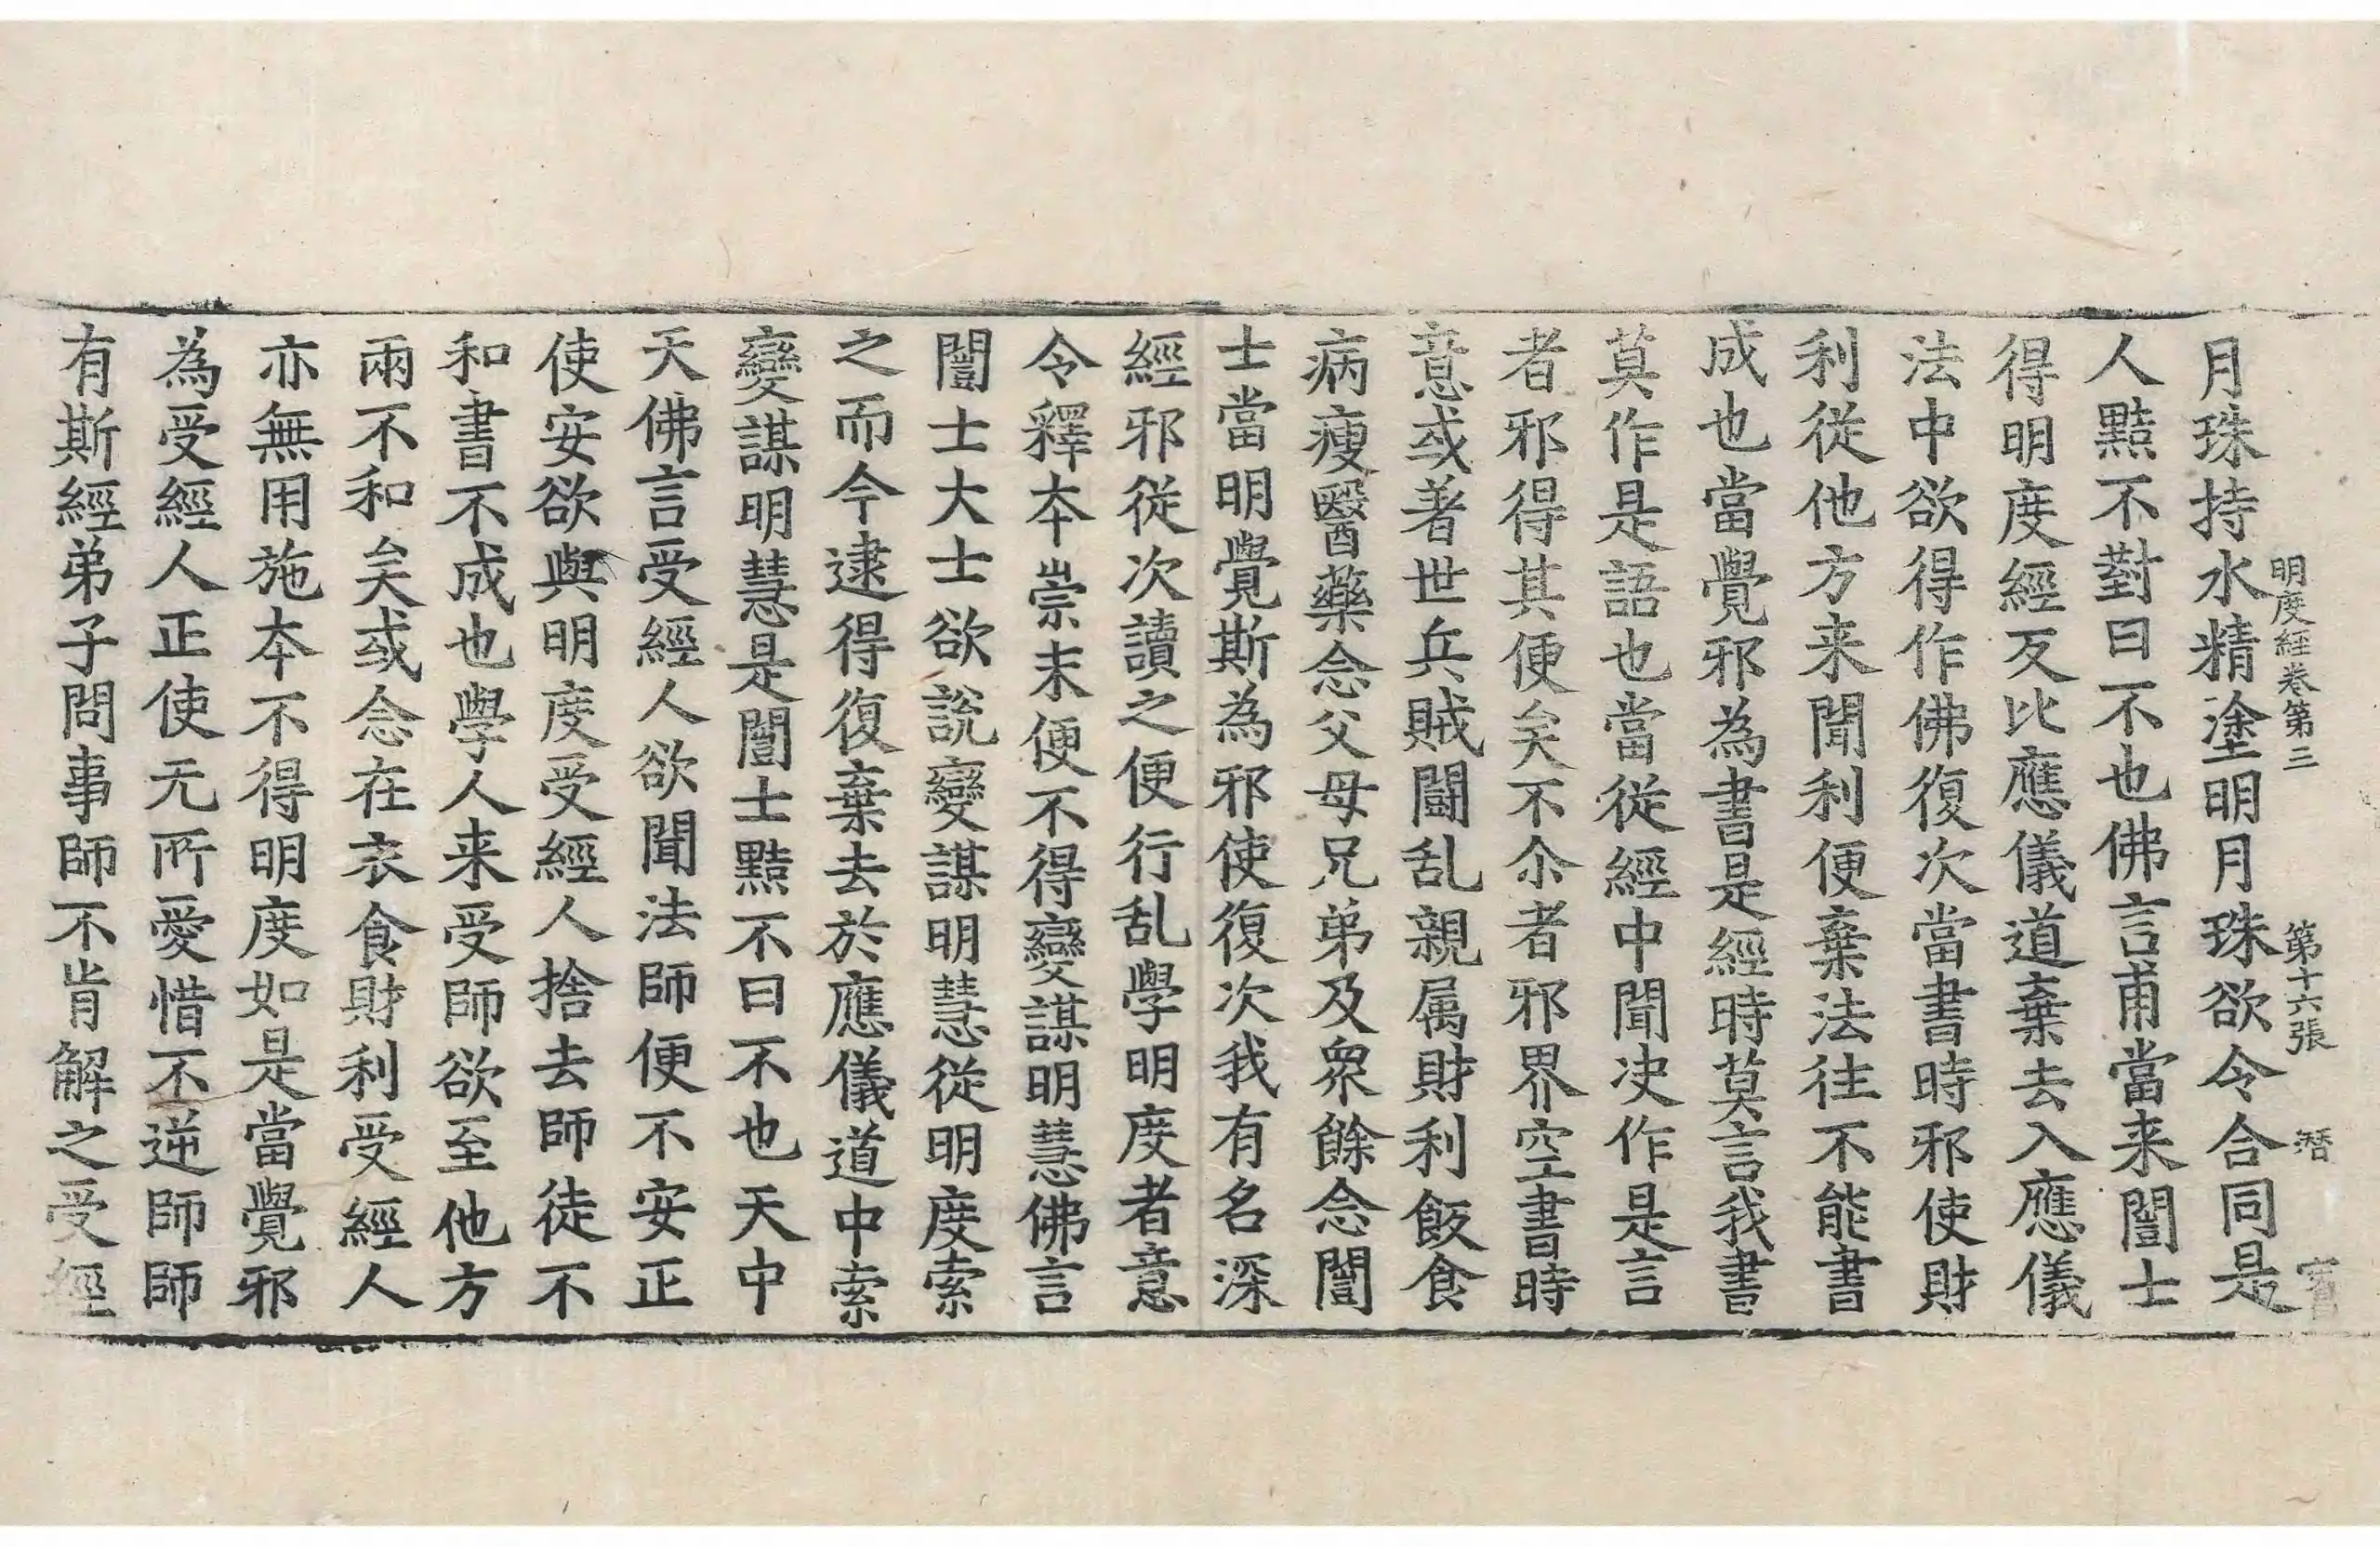 明度經卷第三 第十六張 潛
月珠持水精塗明月珠欲令合同是
人黠不對曰不也佛言甫當来闓士
得明度經反比應儀道棄去入應儀
法中欲得作佛復次當書時邪使財
利従他方来聞利便棄法往不能書
成也當覺邪為書是經時莫言我書
莫作是語也當従經中聞決作是言
者邪得其便矣不尒者邪界空書時
意或著世兵賊鬪乱親属財利飯食
病瘦醫藥念父母兄弟及眾餘念闓
士當明覺斯為邪使復次我有名深
經邪従次讀之便行乱學明度者意
令釋夲崇末便不得變謀明慧佛言
闓士大士欲說變謀明慧従明度索
之而今逮得復棄去於應儀道中索
變謀明慧是闓士黠不曰不也天中
天佛言受經人欲聞法師便不安正
使安欲與明度受經人捨去師徒不
和書不成也學人来受師欲至他方
兩不和矣或念在衣食財利受經人
亦無用施夲不得明度如是當覺邪
為受經人正使无所愛惜不逆師師
有斯經弟子問事師不肯解之受經